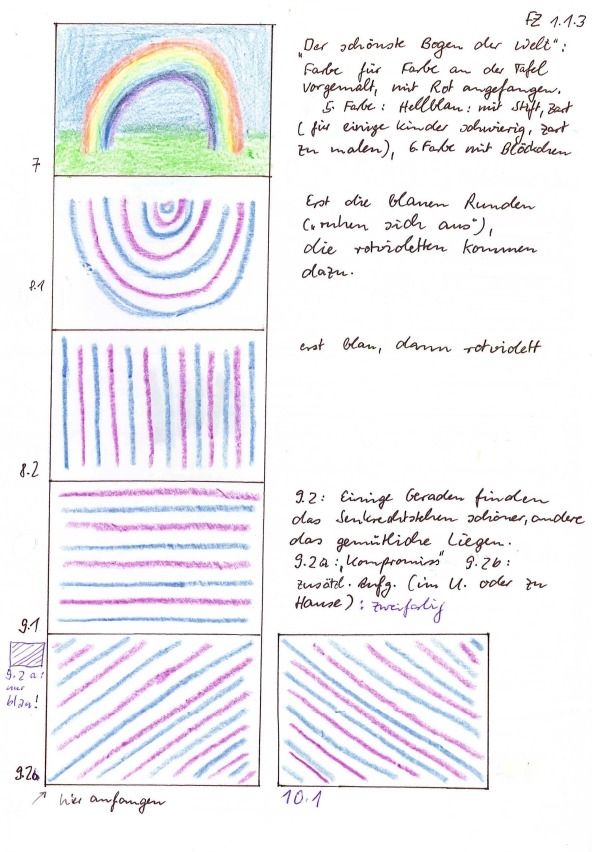 FZ 1.1.3
"Der schönste Bogen der Welt":
Farbe für Farbe an der Tafel
vorgemalt, mit Rot angefangen.
5. Farbe: Hellblau: mit Stift, zart
(für einige Kinder schwierig, zart
zu malen), 6. Farbe mit Blöckchen
7
Erst die blauen Runden
("ruhen sich aus"),
die rotvioletten kommen
dazu.
8.1
erst blau, dann rotviolett
8.2
9.2: Einige Geraden finden
das Senkrechtstehen schöner, andere
das gemütliche Liegen.
9.2a: "Kompromiss" 9.2b:
zusätzl. Aufg. (im U. oder zu
Hause): zweifarbig
9.1
9.2a:
nur
blau!
9.2b
↗ hier anfangen
10.1